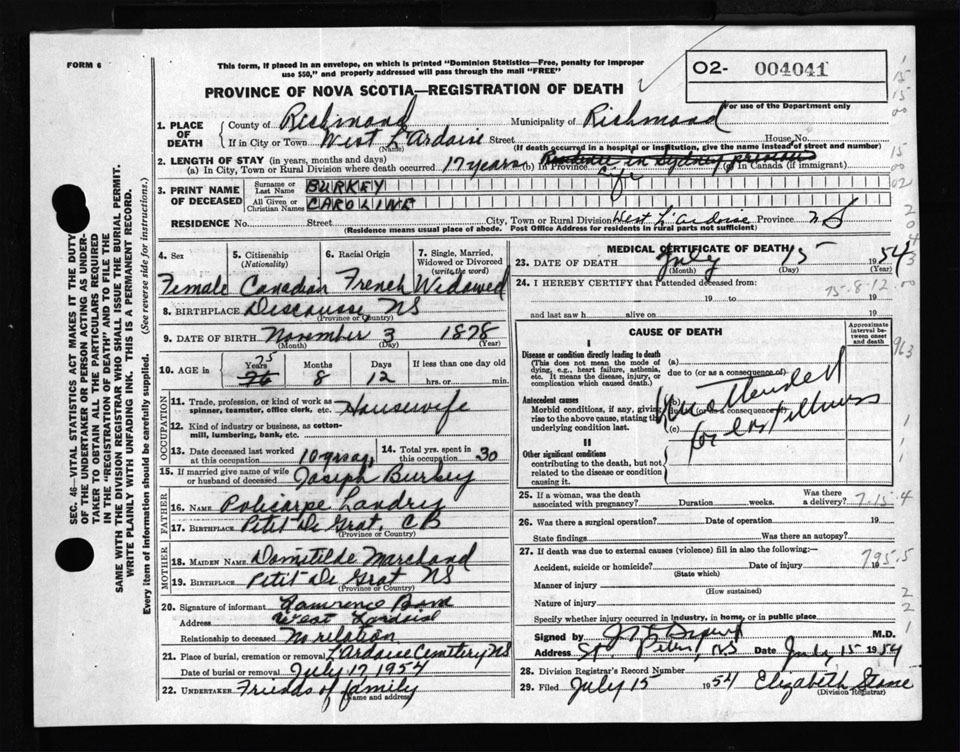 FORM 6
This form, if placed in an envelope, on which is printed "Dominion Statistics—Free, penalty for improper
use $50," and properly addressed will pass through the mail "FREE"
O2- 004041
PROVINCE OF NOVA SCOTIA—REGISTRATION OF DEATH
For use of the Department only
1. PLACE OF DEATH { County of Richmond Municipality of Richmond
If in City or Town West L'Ardoise Street House No.
(Name) (If death occurred in a hospital or institution, give the name instead of street and number)
2. LENGTH OF STAY (in years, months and days)
(a) In City, Town or Rural Division where death occurred 17 years (b) In Province Residence in Sydney previous Life (c) In Canada (if immigrant)
3. PRINT NAME OF DECEASED { Surname or Last Name BURKEY
All Given or Christian Names CAROLINE
RESIDENCE No. Street City, Town or Rural Division West L'Ardoise Province N S
(Residence means usual place of abode. Post Office Address for residents in rural parts not sufficient)
4. Sex 5. Citizenship (Nationality) 6. Racial Origin 7. Single, Married, Widowed or Divorced (write the word)
Female Canadian French Widowed
8. BIRTHPLACE Descousse NS
(Province or Country)
9. DATE OF BIRTH November 3 1878
(Month) (Day) (Year)
10. AGE in { Years 76 75 Months 8 Days 12 If less than one day old
hrs. or min.
OCCUPATION
11. Trade, profession, or kind of work as spinner, teamster, office clerk, etc. Housewife
12. Kind of industry or business, as cotton-mill, lumbering, bank, etc.
13. Date deceased last worked at this occupation 10 yrs ago 14. Total yrs. spent in this occupation 30
15. If married give name of wife or husband of deceased Joseph Burkey
FATHER
16. NAME Policarpe Landry
17. BIRTHPLACE Petit De Grat, CB
(Province or Country)
MOTHER
18. MAIDEN NAME Domitilde Marchand
19. BIRTHPLACE Petit De Grat NS
(Province or Country)
20. Signature of informant Lawrence
Address West Lardoise
Relationship to deceased No relation
21. Place of burial, cremation or removal L'Ardoise Cemetery NS
Date of burial or removal July 17 1954
22. UNDERTAKER Friends of family
(Name and address)
MEDICAL CERTIFICATE OF DEATH
23. DATE OF DEATH July 15 1954
(Month) (Day) (Year)
24. I HEREBY CERTIFY that I attended deceased from:
75-8-12
19 to 19
and last saw h alive on 19
CAUSE OF DEATH
Approximate interval between onset and death
I
Disease or condition directly leading to death (a)
(This does not mean the mode of dying, e.g., heart failure, asthenia, etc. It means the disease, injury, or complication which caused death.)
due to (or as a consequence of)
Antecedent causes (b)
Morbid conditions, if any, giving rise to the above cause, stating the underlying condition last.
due to (or as a consequence of)
(c)
Not attended
for last illness
II
Other significant conditions
contributing to the death, but not related to the disease or condition causing it.
25. If a woman, was the death associated with pregnancy? Duration weeks. Was there a delivery? 7-15-4
26. Was there a surgical operation? Date of operation 19
State findings Was there an autopsy?
27. If death was due to external causes (violence) fill in also the following:—
795.5
Accident, suicide or homicide? Date of injury 19
(State which)
Manner of injury
(How sustained)
Nature of injury
Specify whether injury occurred in industry, in home, or in public place
Signed by M.D.
Address St. Peters, NS Date July 15 1954
28. Division Registrar's Record Number
29. Filed July 15 1954 Elizabeth Stone
(Division Registrar)
SEC. 46—VITAL STATISTICS ACT MAKES IT THE DUTY
OF THE UNDERTAKER OR PERSON ACTING AS UNDER-
TAKER TO OBTAIN ALL THE PARTICULARS REQUIRED
IN THE "REGISTRATION OF DEATH" AND TO FILE THE
SAME WITH THE DIVISION REGISTRAR WHO SHALL ISSUE THE BURIAL PERMIT.
WRITE PLAINLY WITH UNFADING INK. THIS IS A PERMANENT RECORD.
Every item of information should be carefully supplied. (See reverse side for instructions.)